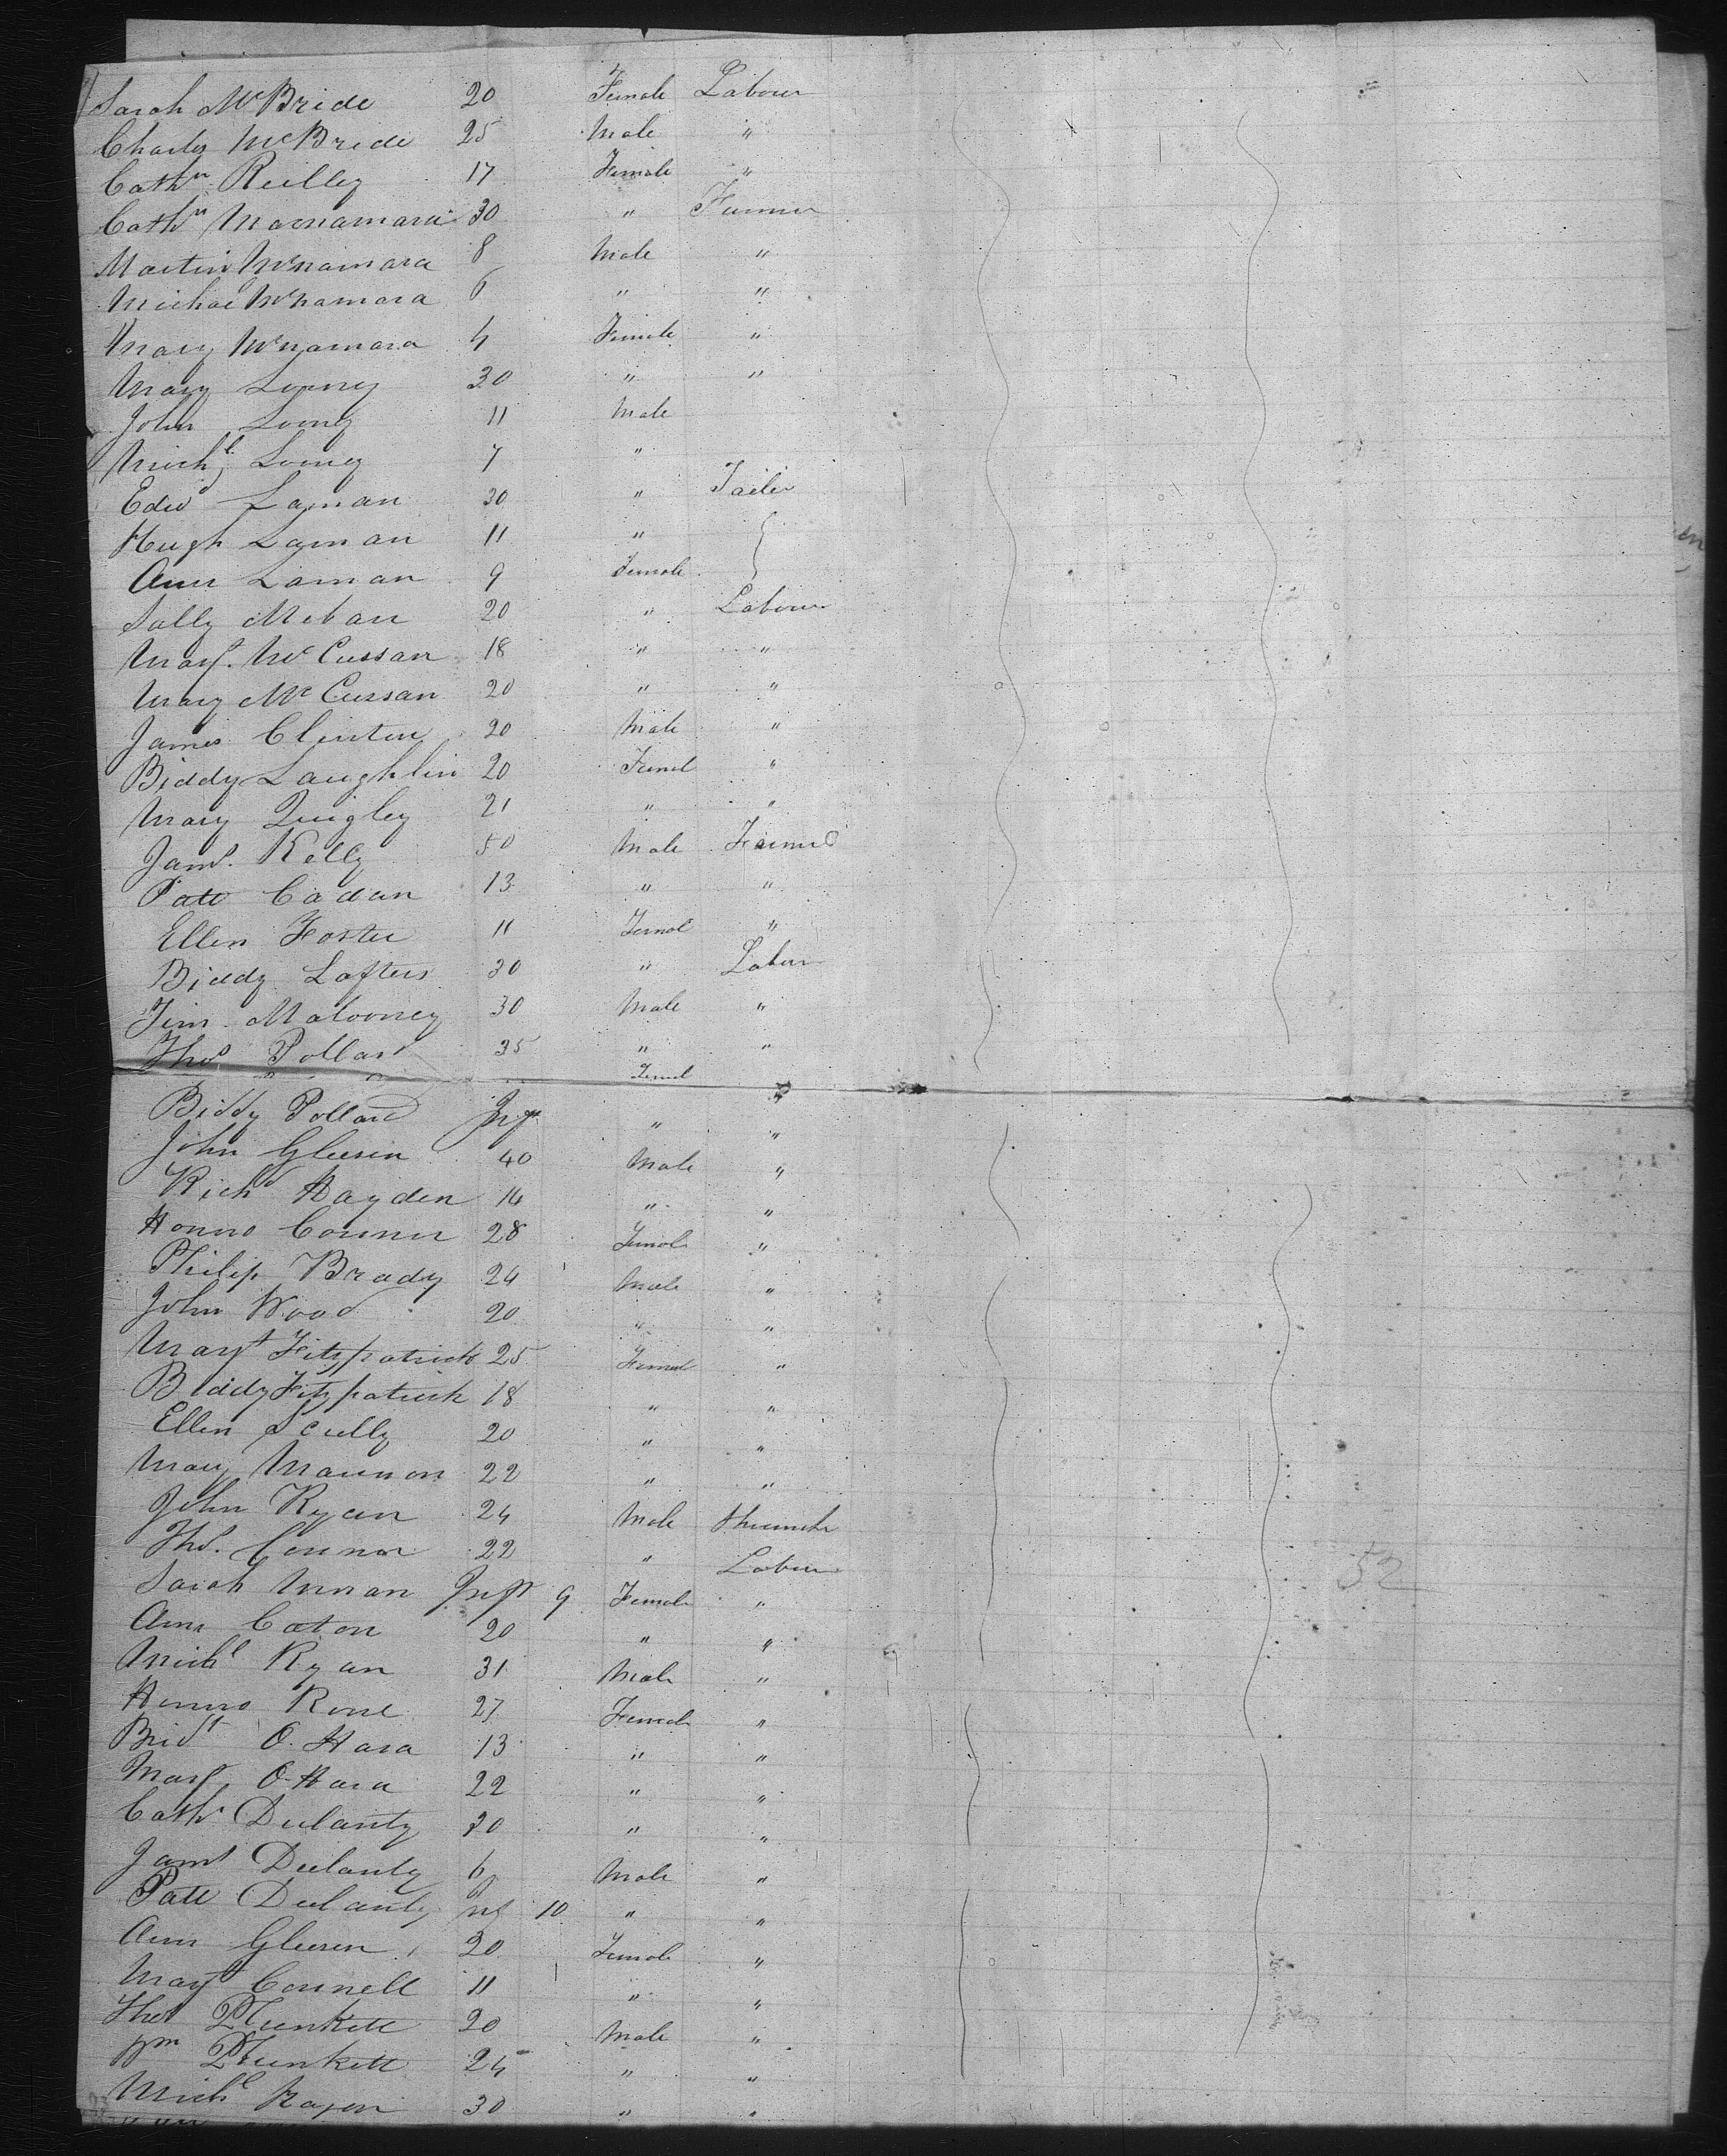 Sarah McBride 20 Female Labour
Charles McBride 25 Male "
Cathn Reilley 17 Female "
Cathn Macnamara 30 " Farmer
Martin Mcnamara 8 Male "
Michae Mcnamara 6 " "
Mary Mcnamara 4 Female "
Mary Looney 30 " "
John Loony 11 Male
Michl Looney 7 "
Edwd Laman 30 " Tailor
Hugh Laman 11 "
Ann Laman 9 Female
Sally Meban 20 " Labour
Margt McCussan 18 " "
Mary McCussan 20 " "
James Clinton 20 Male "
Biddy Laughlin 20 Femal "
Mary Quigley 21 " "
Jams Kelly 50 Male Farmer
Patt Cadan 13 " "
Ellen Foster 11 Femal "
Biddy Lofters 30 " Labour
Jim Malooney 30 Male "
Thos Pollard 35 " "
Femal
Biddy Pollard Inft " "
John Gleeson 40 Male "
Richd Hayden 14 " "
Honno Connor 28 Femal "
Philip Brady 24 Male "
John Wood 20 " "
Margt Fitzpatrick 25 Femal "
Biddy Fitzpatrick 18 " "
Ellen Scully 20 " "
Mary Mannon 22 " "
John Ryan 24 Male Shoemaker
Thos Connor 22 " Labour
52
Sarah Unnan Inft 9 Female "
Ann Caton 20 " "
Michl Ryan 31 Male "
Honno Rone 27 Female "
Bridt O.Hara 13 " "
Margt O.Hara 22 " "
Cathn Dulanty 20 " "
Jams Dulanty 6 Male "
Patt Dulanty inf 10 " "
Ann Gleeson 20 Female "
Margt Connell 11 " "
Thos Plunkett 20 Male "
Wm Plunkett 24 " "
Michl 30 " "